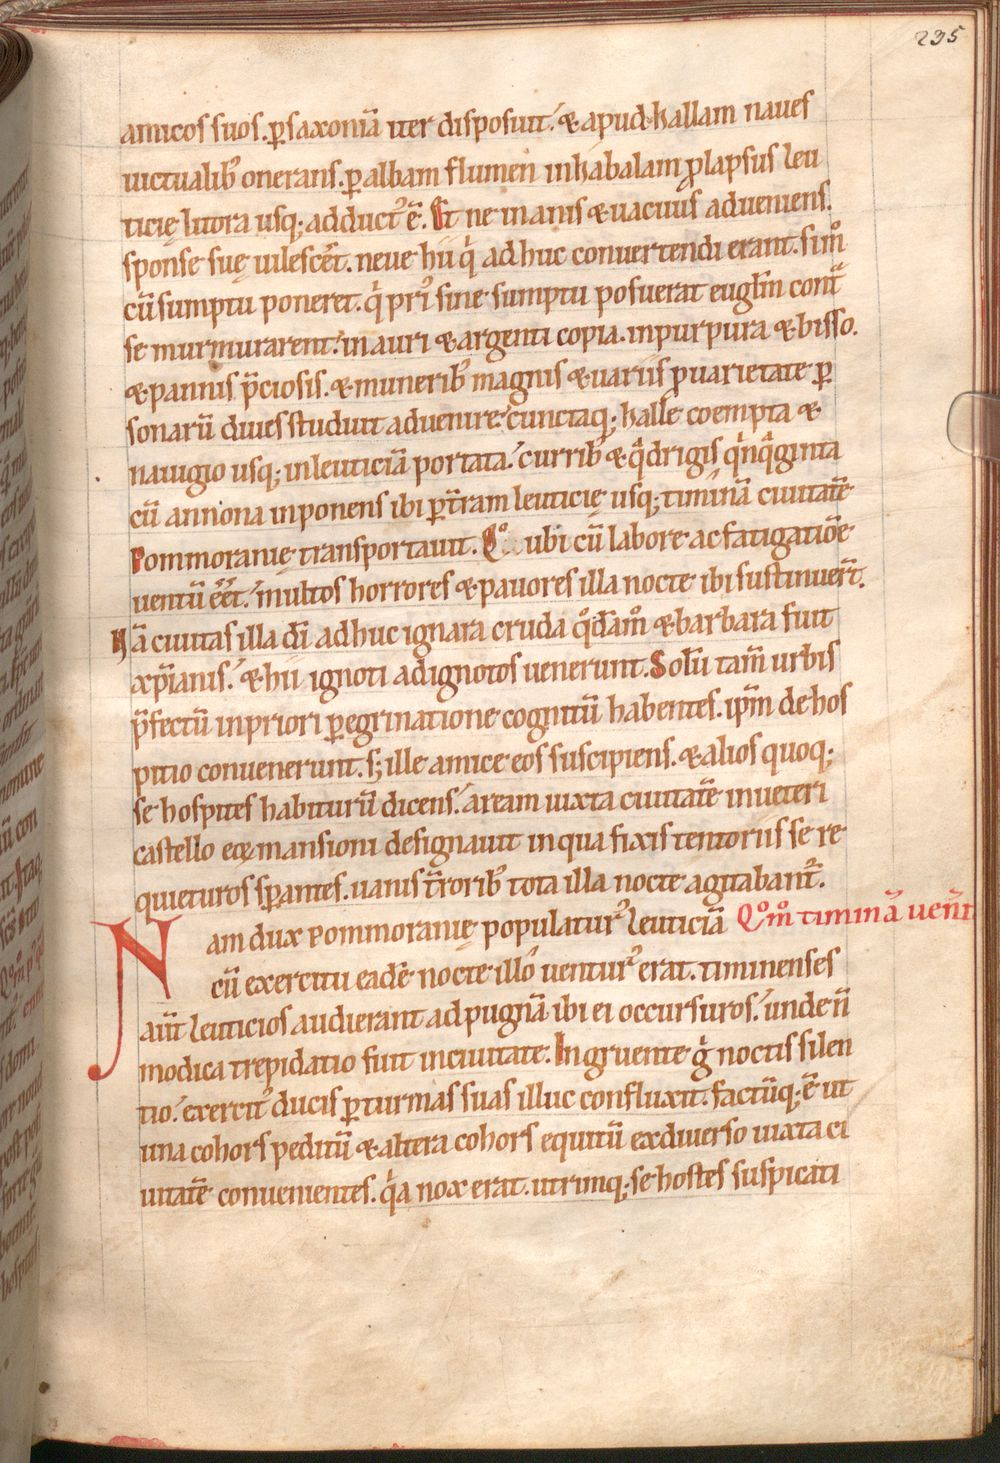 235
amicos suos. ꝑ saxoniā iter disposuit. & apud hallam naues
uictualib᷒ onerans. ꝑ albam flumen in habalam ꝓlapsus leu
ticię litora usq; adduct᷒ ē. Et ne inanis & uacuus adueniens.
sponse suę uilesceret̄. neue hii q̇ adhuc conuertendi erant. sim̊
cū sumptu poneret. q̇ pri᷒ sine sumptu posuerat eugl̄m cont̄
se murmurarent. in auri & argenti copia. in purpura & bisso.
& pannis p̄ciosis. & munerib᷒ magnis & uariis ꝓ uarietate ꝑ
sonarū diues studuit aduenire. cunctaq; halle coempta &
nauigio usq; in leuticiā portata. currib᷒ & q̇drigis q̇nq̇ginta
cū annona inponens ibi ꝑ t̄ram leuticię usq; timinā ciuitatē
Pommoranię transportauit. Q̊ ubi cū labore ac fatigatiōe
uentū eēt. multos horrores & pauores illa nocte ibi sustinuer̄t.
Nā ciuitas illa dī adhuc ignara cruda q̊dām̊ & barbara fuit
xp̄ianis. & hii ignoti ad ignotos uenerunt. Solū tam̄ urbis
p̄fectū in priori ꝑegrinatione cognitū habentes. ip̄m de hos
pitio conuenerunt. s; ille amice eos suscipiens. & alios quoq;
se hospites habiturū dicens. aream iuxta ciuitatē in ueteri
castello eoꝝ mansioni designauit in qua fixis tentoriis se re
quieturos sꝑantes. uanis t̄rorib᷒ tota illa nocte agitabant᷑.
Nam dux Pommoranię populatur᷒ leuticiā Q̊m̊ timinā ven̄it
cū exercitu eadē nocte illo uentur᷒ erat. timinenses
aūt leuticios audierant ad pugnā ibi ei occursuros. unde n̄
modica trepidatio fuit in ciuitate. Ingruente g̊ noctis silen
tio. exercit᷒ ducis ꝑ turmas suas illuc confluxit. factūq; ē ut
una cohors peditū & altera cohors equitū ex diuerso iuxta ci
uitatē conuenientes. q̇a nox erat. utrimq; se hostes suspicati